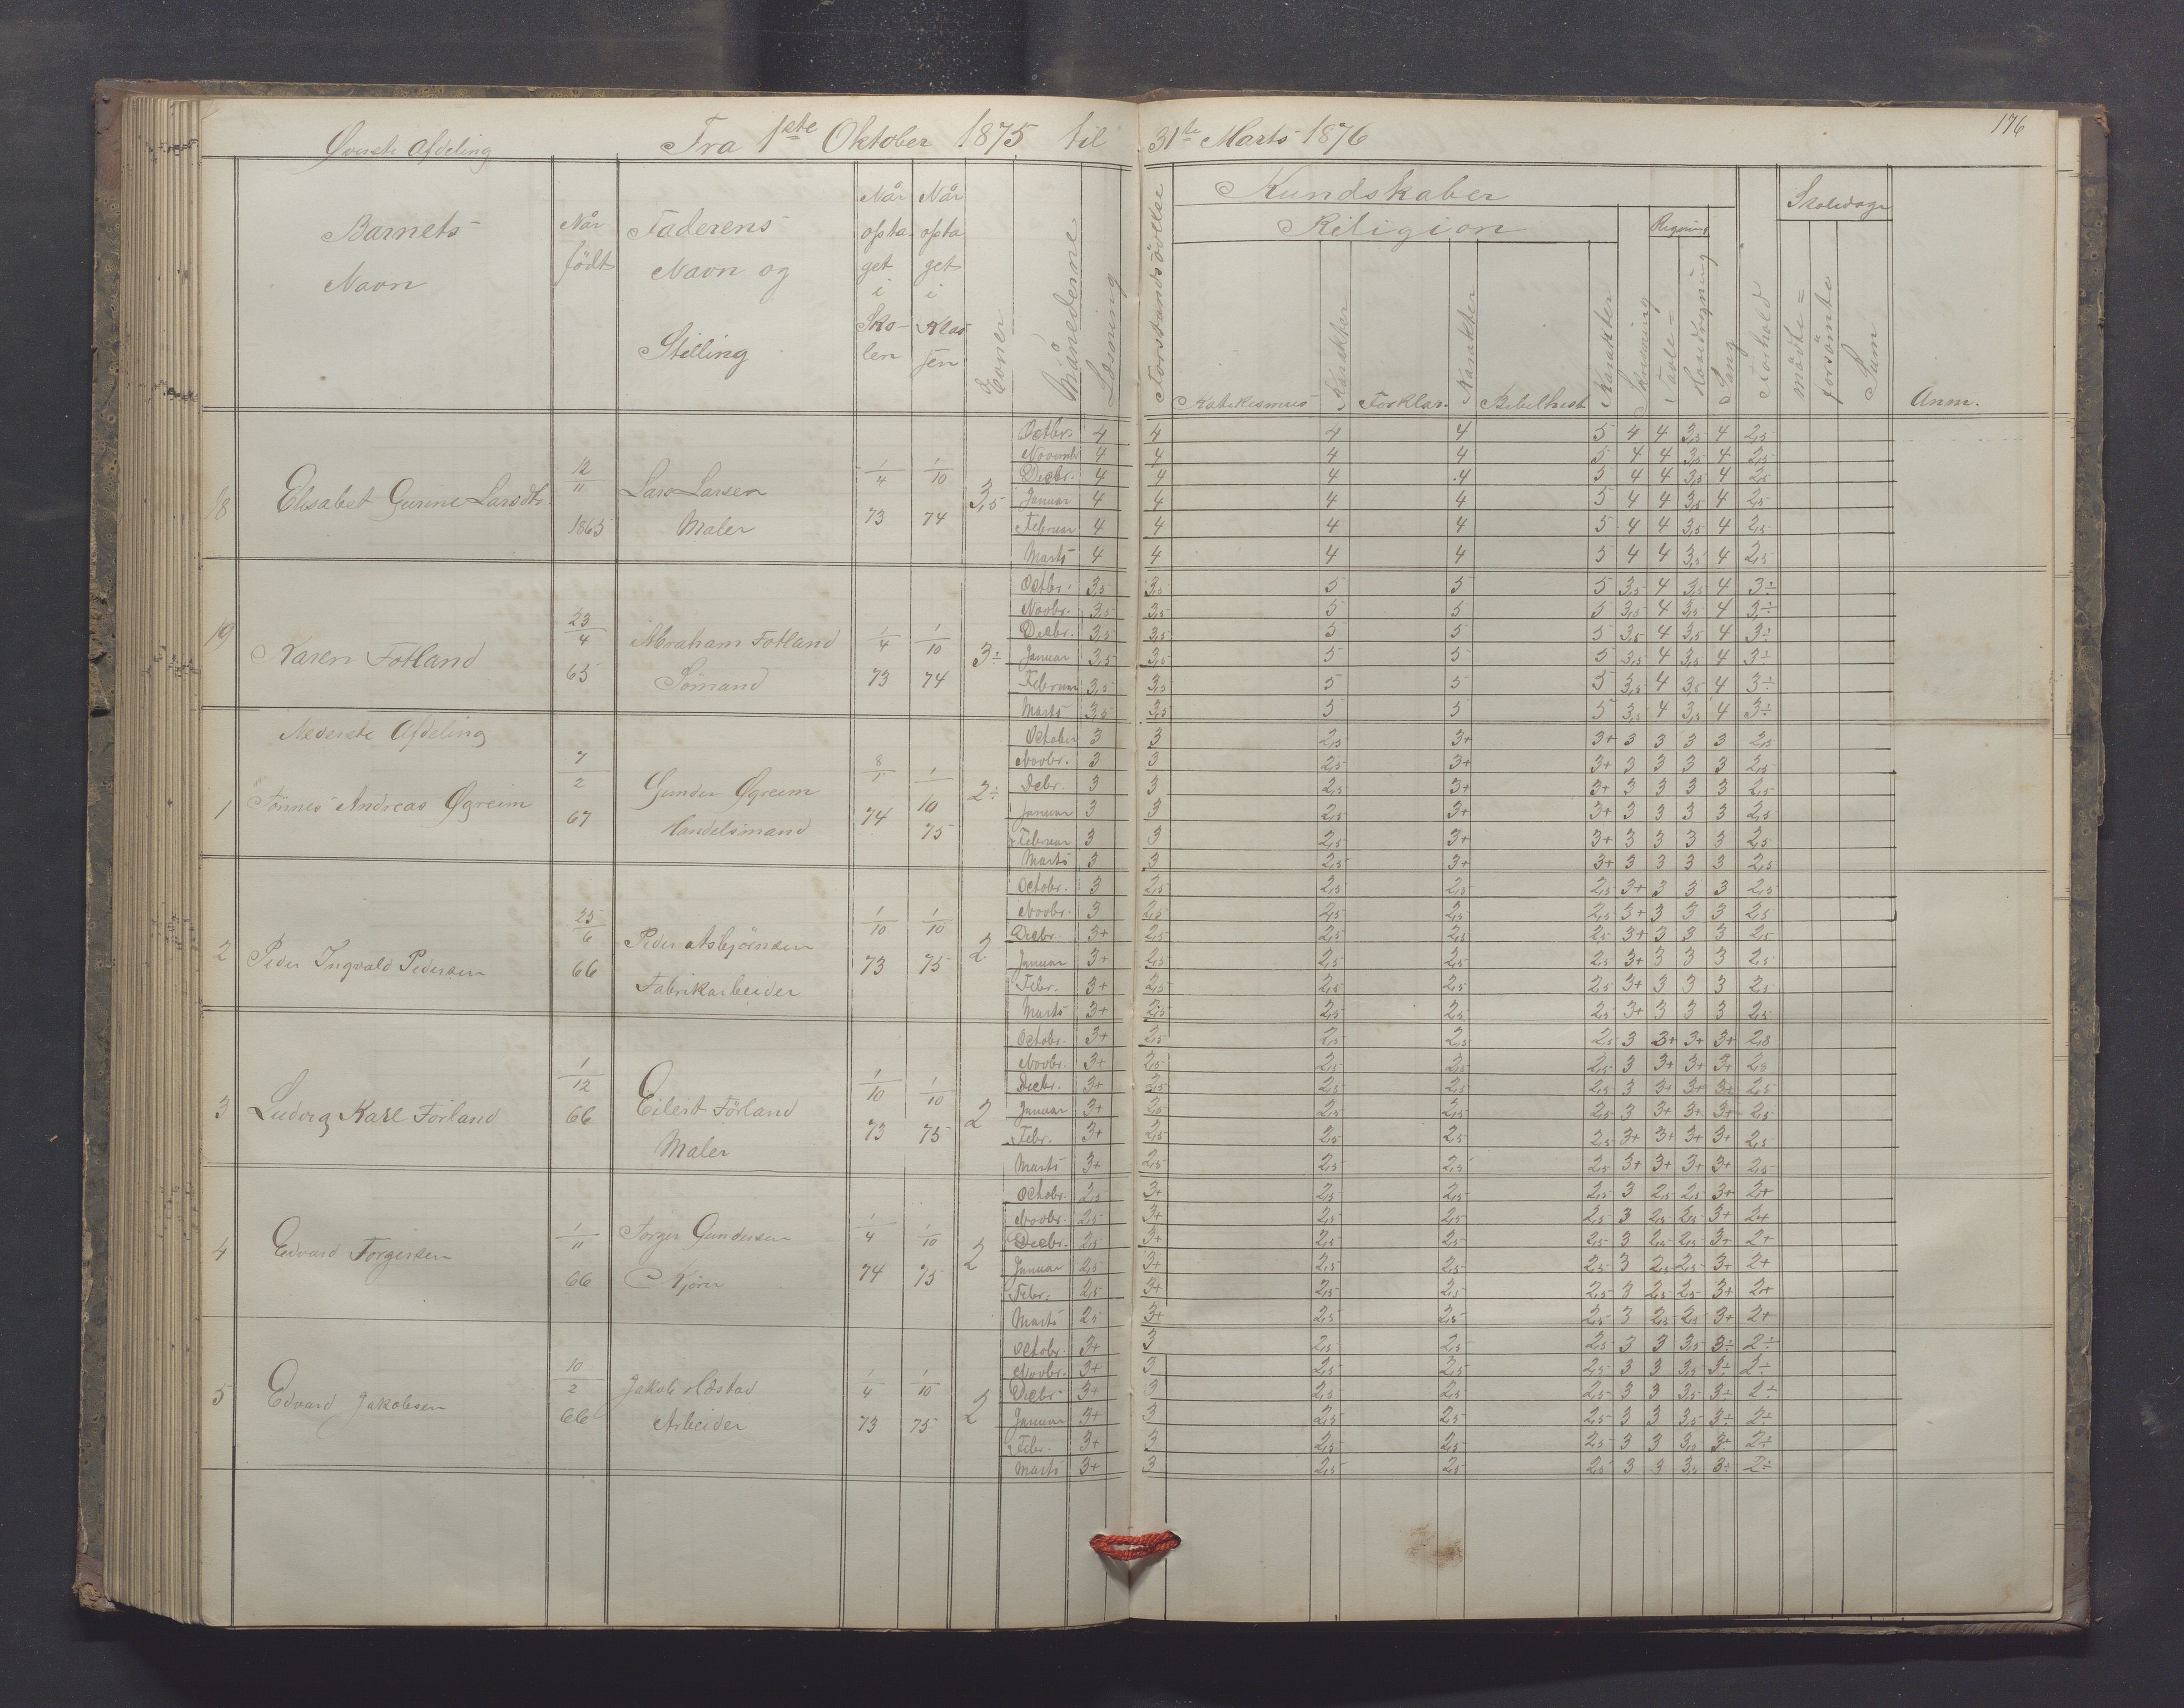 176
Øverste Afdeling Fra 1ste Oktober 1875 til 31te Marts 1876
Barnets Navn
Når født
Faderens Navn og Stilling
Når optaget i Skolen
Når optaget i Klassen
Evner
Månederne
Læsning
Forstandsövelse
Kundskaber
Religion
Katekismus Karakter Forklar. Karakter Bibelhist. Karakter
Skrivning
Regning
Tavle=
Hovedregning
Sang
Forhold
Skoledage
mödte=
forsömte
Sum
Anm.
18 Elisabet Gurine Larsdtr. 12/11 1865 Lars Larsen Maler 1/4 73 1/10 74 3,5
Octbr. 4 4 4 4 5 4 4 3,5 4 2,5
Novemb. 4 4 4 4 5 4 4 3,5 4 2,5
Decbr. 4 4 4 4 5 4 4 3,5 4 2,5
Januar 4 4 4 4 5 4 4 3,5 4 2,5
Februar 4 4 4 4 5 4 4 3,5 4 2,5
Marts 4 4 4 4 5 4 4 3,5 4 2,5
19 Karen Fotland 23/4 65 Abraham Fotland Sömand 1/4 73 1/10 74 3÷
Octbr. 3,5 3,5 5 5 5 3,5 4 3,5 4 3÷
Novbr. 3,5 3,5 5 5 5 3,5 4 3,5 4 3÷
Decbr. 3,5 3,5 5 5 5 3,5 4 3,5 4 3÷
Januar 3,5 3,5 5 5 5 3,5 4 3,5 4 3÷
Februar 3,5 3,5 5 5 5 3,5 4 3,5 4 3÷
Marts 3,5 3,5 5 5 5 3,5 4 3,5 4 3÷
Nederste Afdeling
1 Tönnes Andreas Øgreim 7/2 67 Gunder Øgreim Handelsmand 8/1 74 1/10 75 2÷
October 3 3 2,5 3+ 3+ 3 3 3 3 2,5
Novbr. 3 3 2,5 3+ 3+ 3 3 3 3 2,5
Debr. 3 3 2,5 3+ 3+ 3 3 3 3 2,5
Januar 3 3 2,5 3+ 3+ 3 3 3 3 2,5
Februar 3 3 2,5 3+ 3+ 3 3 3 3 2,5
Marts 3 3 2,5 3+ 3+ 3 3 3 3 2,5
2 Peder Ingvald Pedersen 25/6 66 Peder Asbjörnsen Fabrikarbeider 1/10 73 1/10 75 2
Octobr. 3 2,5 2,5 2,5 2,5 3+ 3 3 3 2,5
Novbr. 3 2,5 2,5 2,5 2,5 3+ 3 3 3 2,5
Decbr. 3+ 2,5 2,5 2,5 2,5 3+ 3 3 3 2,5
Januar 3+ 2,5 2,5 2,5 2,5 3+ 3 3 3 2,5
Febr. 3+ 2,5 2,5 2,5 2,5 3+ 3 3 3 2,5
Marts 3+ 2,5 2,5 2,5 2,5 3+ 3 3 3 2,5
3 Ludvig Karl Förland 1/12 66 Eilert Förland Maler 1/10 73 1/10 75 2
Octobr. 3+ 2,5 2,5 2,5 2,5 3 3+ 3+ 3+ 2,8
Novbr. 3+ 2,5 2,5 2,5 2,5 3 3+ 3+ 3+ 2,8
Decbr. 3+ 2,5 2,5 2,5 2,5 3 3+ 3+ 3+ 2,5
Januar 3+ 2,5 2,5 2,5 2,5 3 3+ 3+ 3+ 2,5
Febr. 3+ 2,5 2,5 2,5 2,5 3+ 3+ 3+ 3+ 2,5
Marts 3+ 2,5 2,5 2,5 2,5 3+ 3+ 3+ 3+ 2,5
4 Edvard Torgersen 1/11 66 Torger Gundersen Kjörer 1/4 74 1/10 75 2
Octobr. 2,5 3+ 2,5 2,5 2,5 3 2,5 2,5 3+ 2+
Novbr. 2,5 3+ 2,5 2,5 2,5 3 2,5 2,5 3+ 2+
Decbr. 2,5 3+ 2,5 2,5 2,5 3 2,5 2,5 3+ 2+
Januar 2,5 3+ 2,5 2,5 2,5 3 2,5 2,5 3+ 2+
Febr. 2,5 3+ 2,5 2,5 2,5 3 2,5 2,5 3+ 2+
Marts 2,5 3+ 2,5 2,5 2,5 3 2,5 2,5 3+ 2+
5 Edvard Jakobsen 10/2 66 Jakob Arbeider 1/4 73 1/10 75 2
Octobr. 3+ 3 2,5 2,5 2,5 3 3 3,5 3÷ 2÷
Novbr. 3+ 3 2,5 2,5 2,5 3 3 3,5 3÷ 2÷
Decbr. 3+ 3 2,5 2,5 2,5 3 3 3,5 3÷ 2÷
Januar 3+ 3 2,5 2,5 2,5 3 3 3,5 3÷ 2÷
Febr. 3+ 3 2,5 2,5 2,5 3 3 3,5 3÷ 2÷
Marts 3+ 3 2,5 2,5 2,5 3 3 3,5 3÷ 2÷